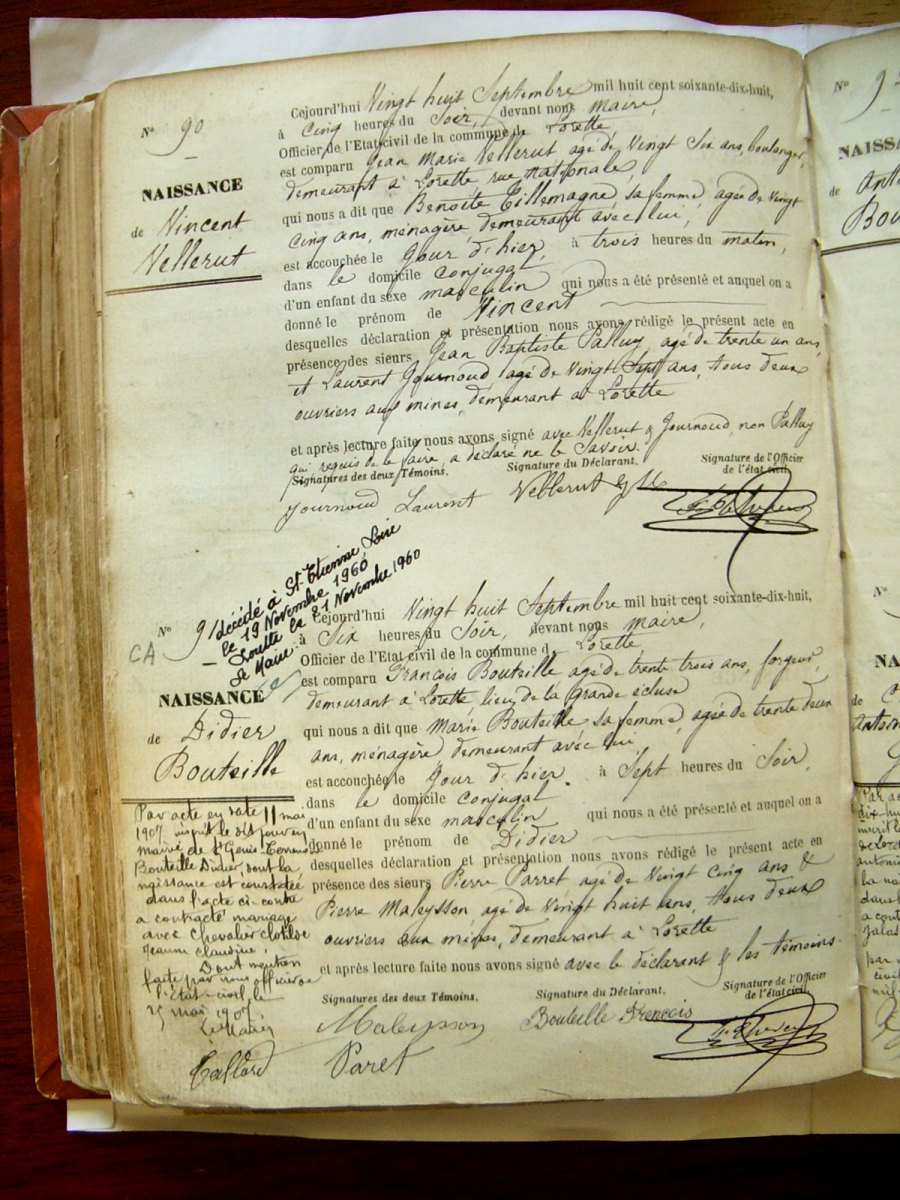 N° 90
NAISSANCE
de Vincent
Vellerut
Cejourd'hui Vingt huit Septembre mil huit cent soixante-dix-huit,
à Cinq heures du Soir, devant nous maire,
Officier de l'Etat civil de la commune de Lorette
est comparu Jean Marie Vellerut agé de Vingt Six ans, boulanger,
demeurant à Lorette rue nationale,
qui nous a dit que Benoite Tillemagne, sa femme, agée de vingt
Cinq ans, ménagère demeurant avec lui,
est accouchée le Jour d'hier, à trois heures du matin,
dans le domicile conjugal
d'un enfant du sexe masculin qui nous a été présenté et auquel on a
donné le prénom de Vincent
desquelles déclaration et présentation nous avons rédigé le présent acte en
présence des sieurs Jean Baptiste Palluy, agé de trente un ans,
et Laurent Journoud, agé de Vingt Sept ans, tous deux
ouvriers aux mines, demeurant à Lorette
et après lecture faite nous avons signé avec Vellerut & Journoud, non Palluy
qui requis de le faire a déclaré ne le Savoir.
Signatures des deux Témoins. Signature du Déclarant. Signature de l'Officier
de l'état civil
Journoud Laurent Vellerut
décédé à St-Etienne Loire
le 19 Novembre 1960
Lorette le 21 Novembre 1960
Le Maire
CA
N° 91
NAISSANCE
de Didier
Bouteille
Cejourd'hui Vingt huit Septembre mil huit cent soixante-dix-huit,
à Six heures du Soir, devant nous maire,
Officier de l'Etat civil de la commune de Lorette,
est comparu François Bouteille agé de trente trois ans, forgeur,
demeurant à Lorette, lieu de la Grande écluse
qui nous a dit que Marie Bouteille sa femme, agée de trente deux
ans, ménagère demeurant avec lui
est accouchée le Jour d'hier. à Sept heures du Soir,
dans le domicile conjugal
d'un enfant du sexe masculin qui nous a été présenté et auquel on a
donné le prénom de Didier
desquelles déclaration et présentation nous avons rédigé le présent acte en
présence des sieurs Pierre Parret agé de Vingt Cinq ans &
Pierre Maleysson, agé de Vingt huit ans, tous deux
ouvriers aux mines, demeurant à Lorette
et après lecture faite nous avons signé avec le déclarant & les témoins.
Signatures des deux Témoins. Signature du Déclarant. Signature de l'Officier
de l'état civil
Maleysson Bouteille Francois
Paret
Par acte en date 11 mai
1907 inscrit le dit jour en
mairie de St Genis-Terrenoire
Bouteille Didier, dont la
naissance est constatée
dans l'acte ci-contre
a contracté mariage
avec Chevalier Clotilde
Jeanne Claudine.
Dont mention
faite par nous officier de
l'état-civil le
15 mai 1907
Le Maire
N°
NAISSA
de Anto
Bou
N°
NA
de
Antoin
Par ac
dix hu
inscrit l
de Lore
antoni
la nai
dans l
a cont
Jalas
par n
civil